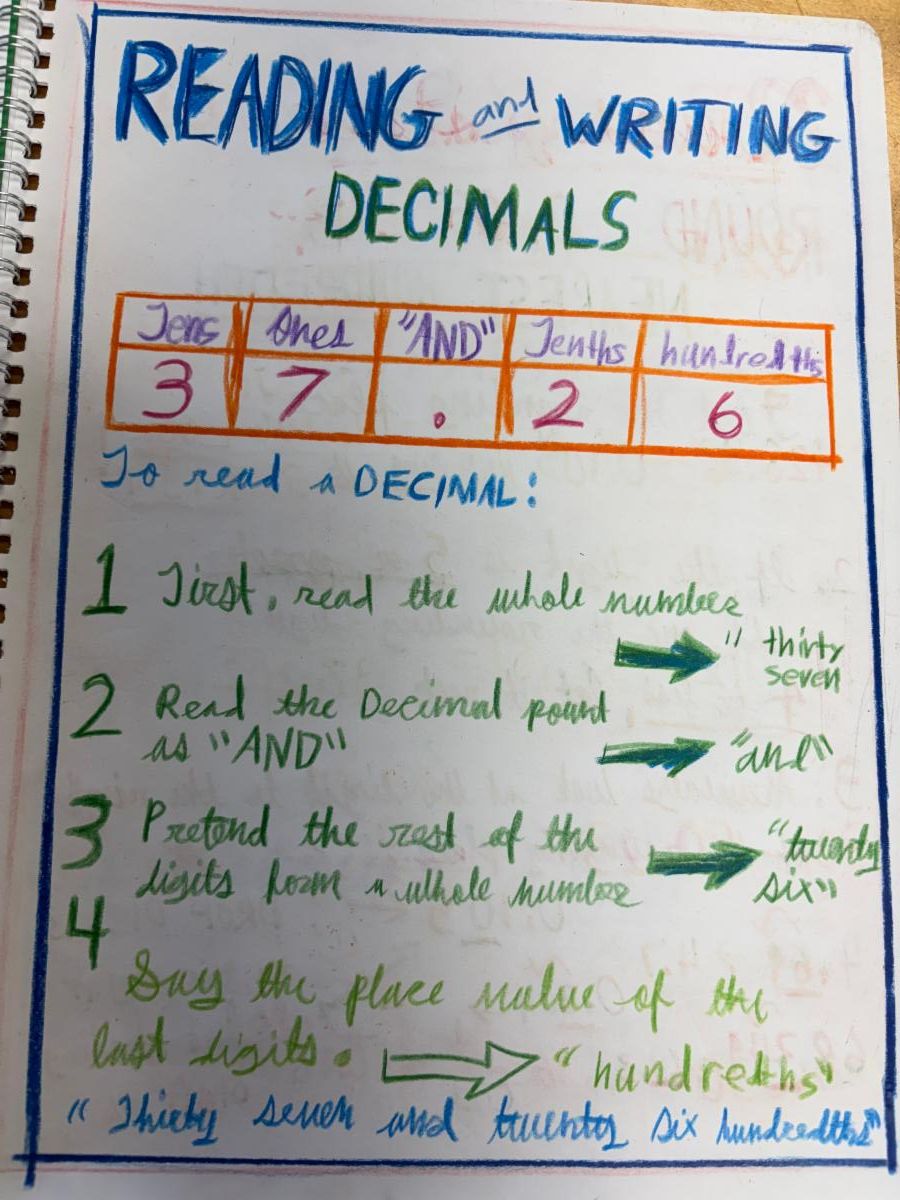 READING and WRITING
DECIMALS
Tens Ones "AND" Tenths hundredths
3 7 . 2 6
To read a DECIMAL:
1 First, read the whole number
" thirty
seven
2 Read the Decimal point
as "AND" "and"
3 Pretend the rest of the
digits form a whole number "twenty
six"
4
Say the place value of the
last digits. "hundredths"
"Thirty seven and twenty six hundredths"